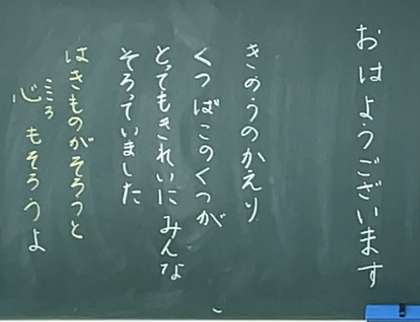 おはようございます
きのうのかえり
くつばこのくつが
とてもきれいにみんな
そろっていました
はきものがそろうと
心もそろうよ
こころ